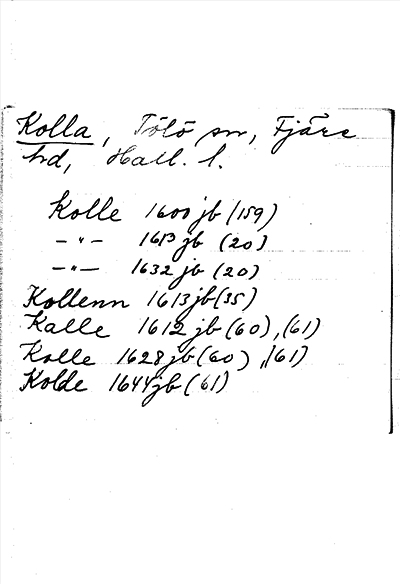 Kolla, Tölö sn, Fjäre
hd, Hall. l.
Kolle 1600 jb (159)
—"— 1613 jb (20)
—"— 1632 jb (20)
Kollenn 1613 jb (35)
Kalle 1612 jb (60), (61)
Kolle 1628 jb (60), (61)
Kolde 1644 jb (61)